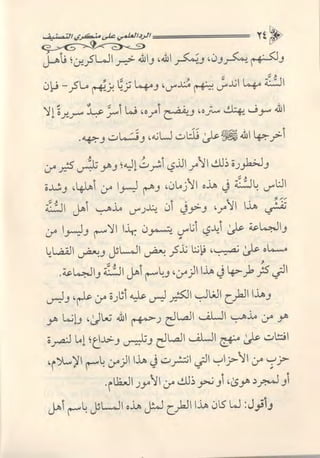 ٢٤
الرد العلمي على منكري التصنيف
ولكنهم يمكرون، ويمكر الله، والله خير الماكرين؛ فأهل
السُّنَّة مهما اندسَّ بينهم مُندس، ومهما تزيَّا بزيِّهم ماكر - فإن
الله سوف يهتك ستره، ويفضح أمره، فما أسرَّ عبدٌ سريرةً إلا
أخرجها الله ﷻ على فَلَتات لسانه، وقَسَمات وجهه.
ولخطورة ذلك الأمر الذي أشرتُ إليه؛ وهو تلبُّس كثير من
الناس بالسُّنَّة في هذه الأزمان، وهم ليسوا من أهلها، وشدة
تفشِّي هذا الأمر، وخوفي أن يندرس مذهب أهل السُّنَّة
والجماعة على أيدي أناسٍ يتسمون بهذا الاسم وليسوا من
مسماه على نصيب، فإننا نذكر بعض المسائل وبعض القضايا
التي كثُر طرحها في هذا الزمن، وباسم أهل السُّنَّة والجماعة.
وهذا الطرح الغالب الكثير ليس عليه أثارة من علم، وليس
هو من مذهب السلف الصالح رحمهم الله تعالى، وإنما هو
افتئات على منهج السلف الصالح وتلبيس وخداع؛ إما لنصرة
حزبٍ من الأحزاب التي انتشرت في هذا الزمن باسم الإسلام،
أو لمجرد هوى، أو نحو ذلك من الأمور العظام.
وأقول: لما كان هذا الطرح لمثل هذه المسائل باسم أهل